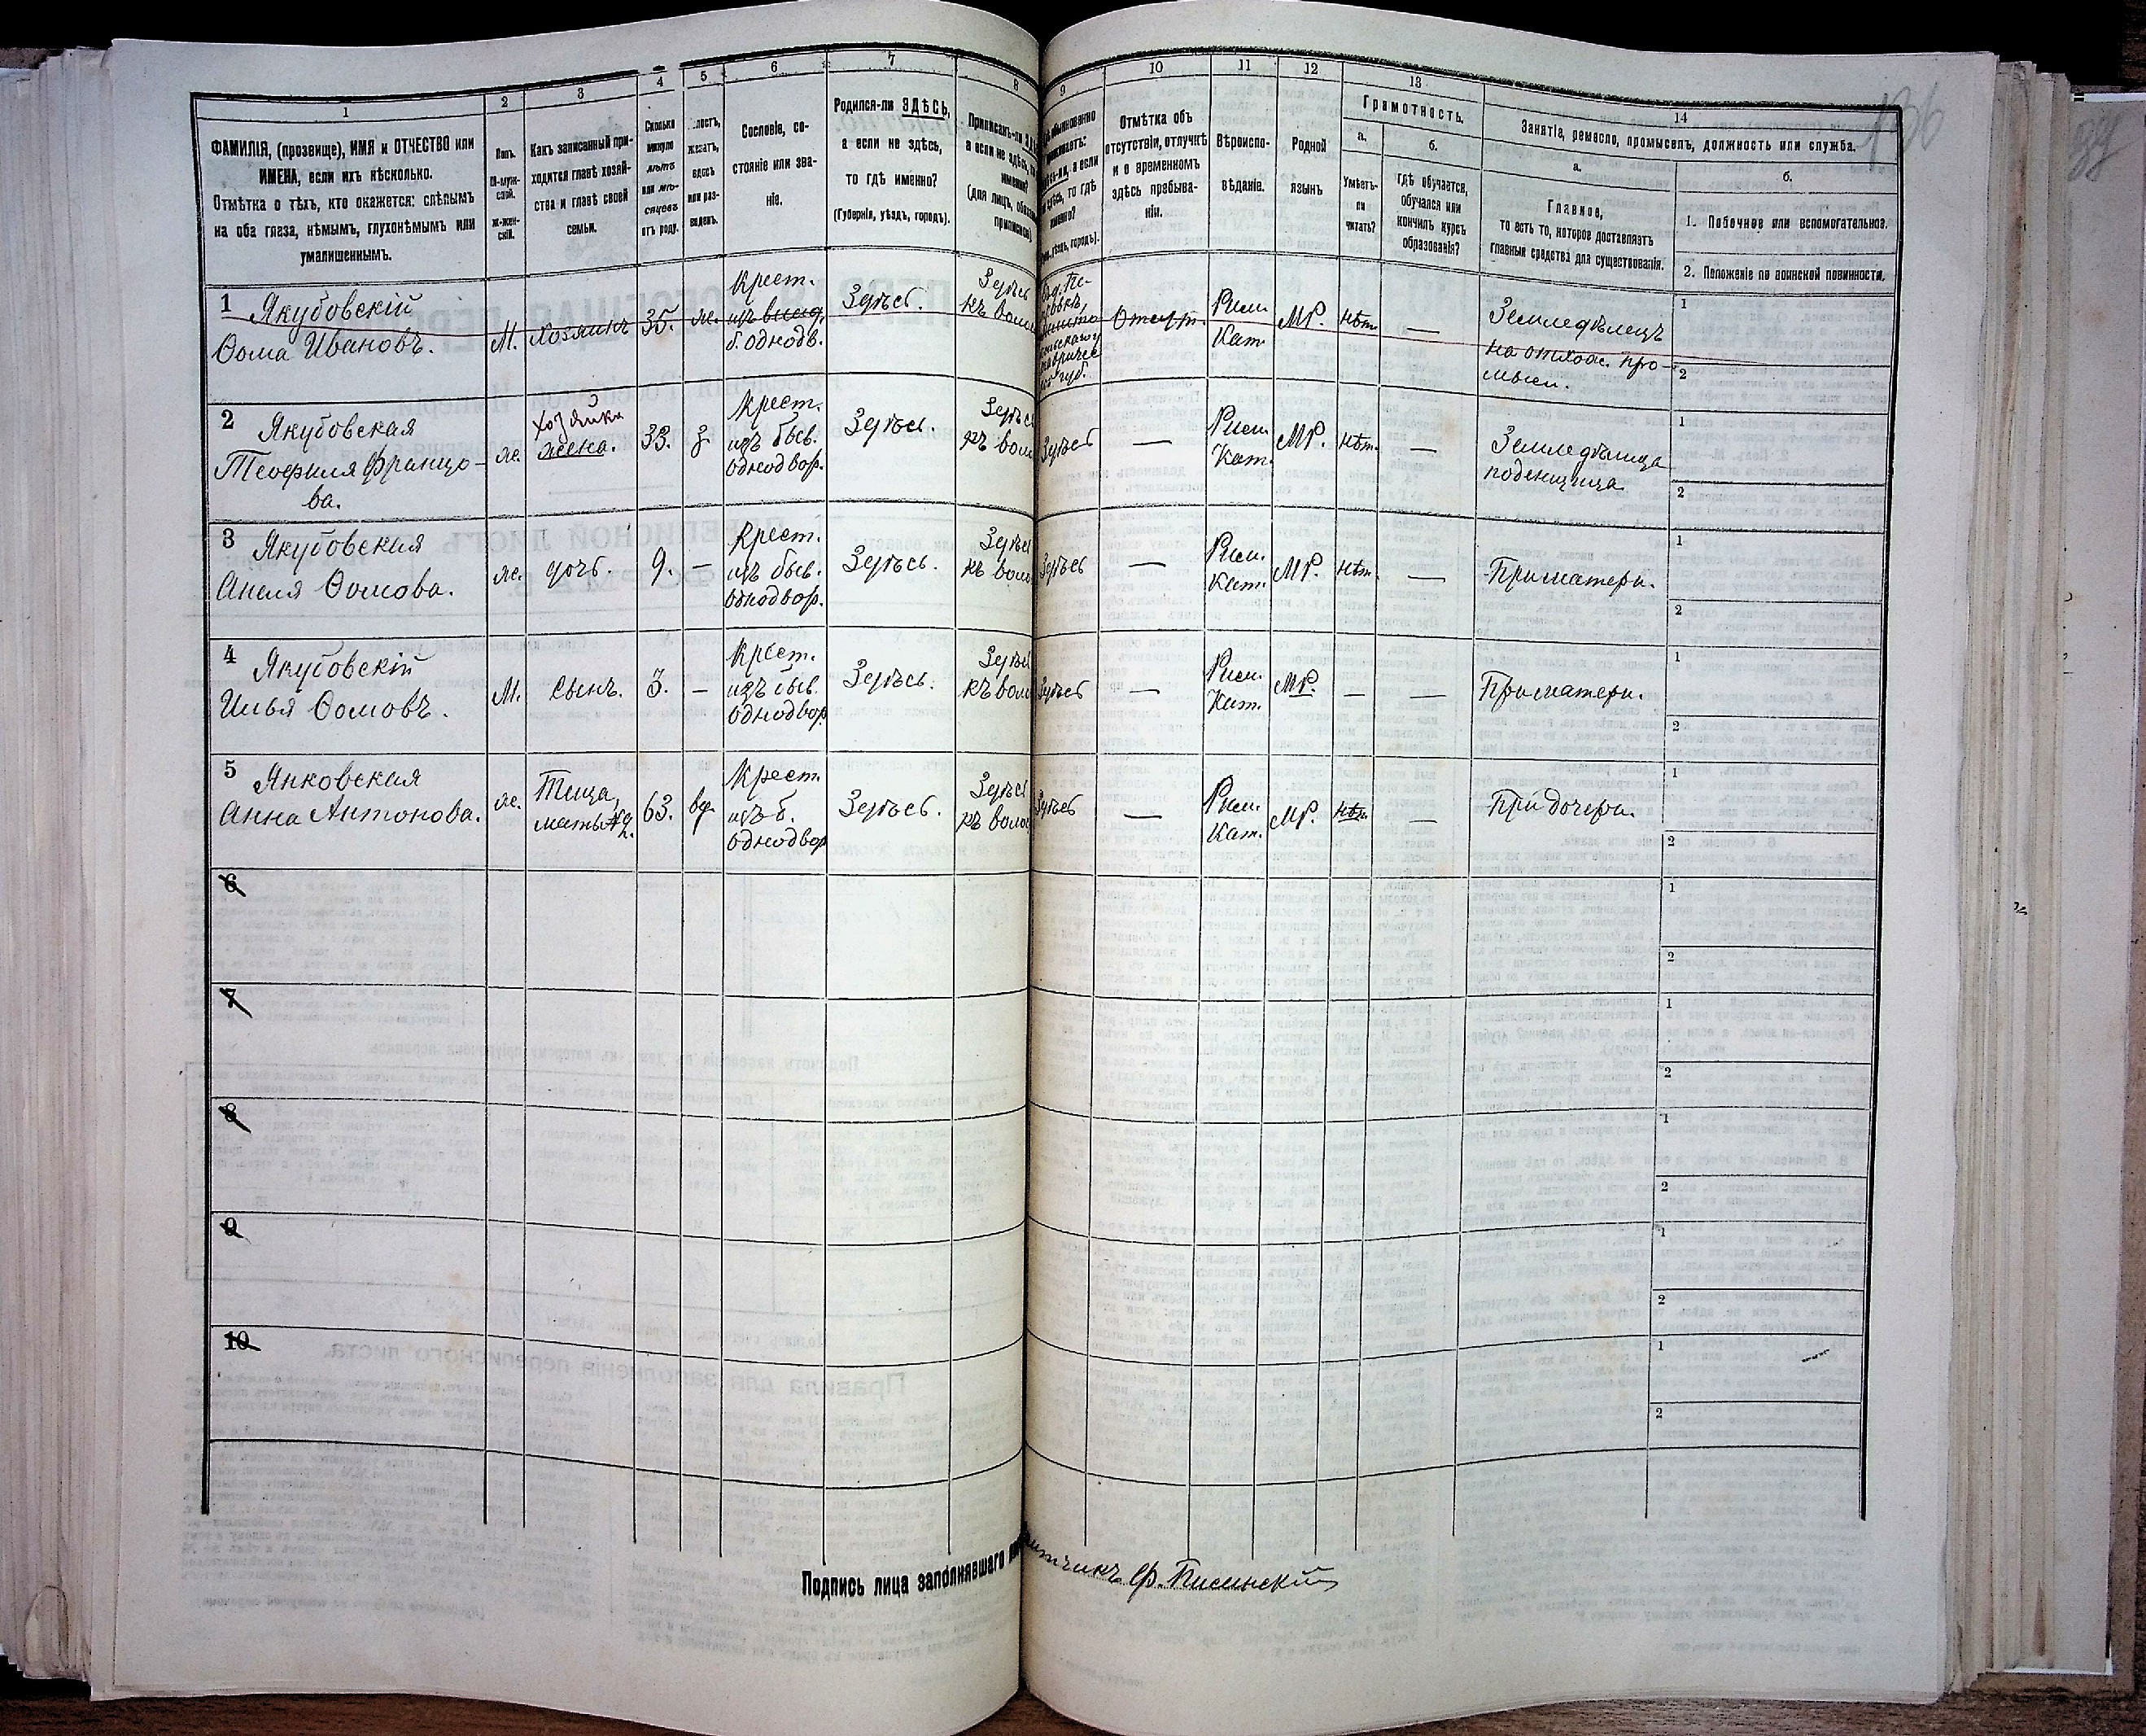 1
ФАМИЛІЯ, (прозвище), ИМЯ и ОТЧЕСТВО или
ИМЕНА, если ихъ нѣсколько.
Отмѣтка о тѣхъ, кто окажется: слѣпымъ
на оба глаза, нѣмымъ, глухонѣмымъ или
умалишеннымъ.
2
Полъ.
М-муж-
ской.
Ж-жен-
скій.
3
Какъ записанный при-
ходится главѣ хозяй-
ства и главѣ своей
семьи.
4
Сколько
минуло
лѣтъ
или мѣ-
сяцевъ
отъ роду.
5
или раз-
веденъ.
6
Сословіе, со-
стояніе или зва-
ніе.
7
Родился-ли ЗДѢСЬ,
а если не здѣсь,
то гдѣ именно?
(Губернія, уѣздъ, городъ).
8
Приписанъ-ли
а если не здѣсь,
9
10
Отмѣтка объ
отсутствіи, отлучкѣ
и о временномъ
здѣсь пребыва-
ніи.
11
Вѣроиспо-
вѣданіе.
12
Родной
языкъ
13
Грамотность.
а.
Умѣетъ-
ли
читать?
б.
Гдѣ обучается,
обучался или
кончилъ курсъ
образованія?
14
Занятіе, ремесло, промыселъ, должность или служба.
а.
Главное,
то есть то, которое доставляетъ
главныя средства для существованія.
б.
1. Побочное или вспомогательное.
2. Положеніе по воинской повинности.
136
1 Якубовскій
Ѳома Ивановъ.
М.
хозяинъ
35.
ж.
Крест.
б. однодв.
Здѣсь.
Здѣсь
къ воло
губ.
Рим.
Кат.
МР.
нѣт.
—
Земледѣлецъ
на отхож. про-
мысл.
1
2
2 Якубовская
Теофиля Францо-
ва.
ж.
хозяйка
жена.
33.
з.
Крест.
изъ быв.
однодвор.
Здѣсь.
Здѣсь
къ воло
Здѣсь
—
Рим.
Кат.
МР.
нѣт.
—
Земледѣлица
поденщица
1
2
3 Якубовская
Анеля Ѳомова.
ж.
дочь.
9.
—
Крест.
изъ быв.
однодвор.
Здѣсь.
Здѣсь
къ воло
Здѣсь
—
Рим.
Кат.
МР.
нѣт.
—
При матери.
1
2
4 Якубовскій
Илья Ѳомовъ.
М.
сынъ.
3.
—
Крест.
изъ быв.
однодвор.
Здѣсь.
Здѣсь
къ воло
Здѣсь
—
Рим.
Кат.
МР.
—
—
При матери.
1
2
5 Янковская
Анна Антонова.
ж.
Теща,
мать №2.
63.
вд.
Крест.
изъ б.
однодвор
Здѣсь.
Здѣсь
къ воло
Здѣсь
—
Рим.
Кат.
МР.
нѣт.
—
При дочери.
1
2
6
1
2
7
1
2
8
1
2
9
1
2
10
1
2
Подпись лица заполнявшаго
Ф. Писинскій